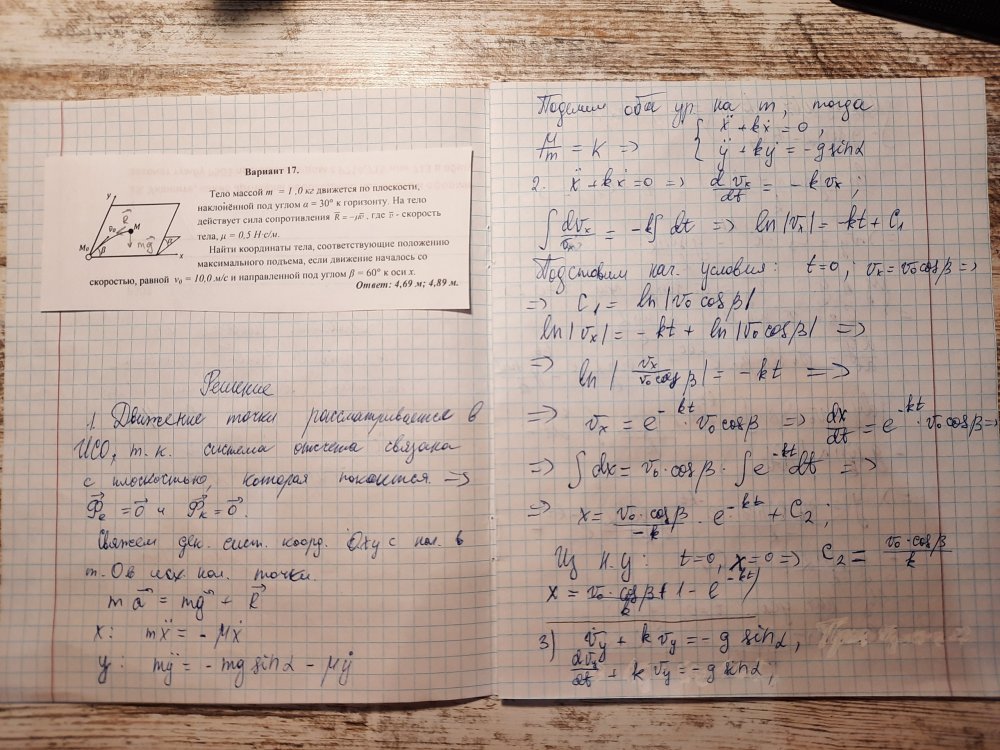 Вариант 17.
Тело массой m = 1,0 кг движется по плоскости,
наклонённой под углом α = 30° к горизонту. На тело
действует сила сопротивления R̄ = −μῡ, где ῡ - скорость
тела, μ = 0,5 Н·с/м.
Найти координаты тела, соответствующие положению
максимального подъема, если движение началось со
скоростью, равной v₀ = 10,0 м/с и направленной под углом β = 60° к оси x.
Ответ: 4,69 м; 4,89 м.
y
R
v₀
M
mg
M₀
β
α
O
x
Решение
1. Движение точки рассматривается в
ИСО, т.к. система отсчета связана
с плоскостью, которая покоится =>
Φ⃗e = 0⃗ и Φ⃗k = 0⃗.
Свяжем дек. сист. коорд. Oxy с нач. в
т. O в исх. пол. точки.
ma⃗ = mg⃗ + R⃗
x: mẍ = - μẋ
y: mÿ = - mg sinα - μẏ
Поделим оба ур. на m, тогда
μ/m = k => { ẍ + kẋ = 0,
ÿ + kẏ = -g sinα
2. ẍ + kẋ = 0 => dvx/dt = - k vx;
∫ dvx/vx = -k∫ dt => ln|vx| = -kt + C₁
Подставим нач. условия: t=0, vx = v₀ cosβ =>
=> C₁ = ln|v₀ cosβ|
ln|vx| = - kt + ln|v₀ cosβ| =>
=> ln| vx/v₀ cosβ | = -kt =>
=> vx = e^-kt · v₀ cosβ => dx/dt = e^-kt · v₀ cosβ =>
=> ∫ dx = v₀ · cosβ · ∫ e^-kt dt =>
=> x = v₀ · cosβ/-k · e^-kt + C₂;
Из н.у: t=0, x=0 => C₂ = v₀ · cosβ/k
x = v₀ · cosβ/k (1 - e^-kt)
3) v̇y + k vy = - g sinα,
dvy/dt + k vy = - g sinα;